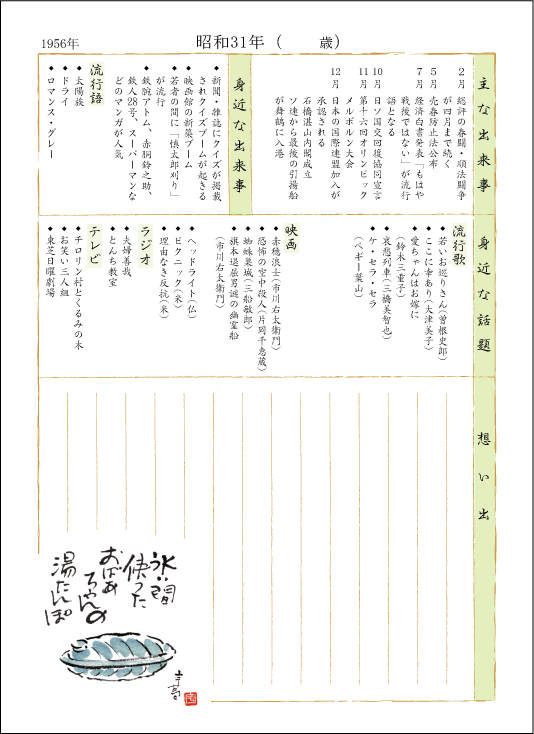 1956年
昭和31年（　　歳）
主な出来事
2月 総評の春闘・順法闘争
が四月まで続く
5月 売春防止法公布
7月 経済白書発表「もはや
戦後ではない」が流行
語となる
10月 日ソ国交回復協同宣言
11月 第十六回オリンピック
メルボルン大会
12月 日本の国際連盟加入が
承認される
石橋湛山内閣成立
ソ連から最後の引揚船
が舞鶴に入港
身近な出来事
◆ 新聞・雑誌にクイズが掲載
されクイズブームが起きる
◆ 映画館の新築ブーム
◆ 若者の間に「慎太郎刈り」
が流行
◆ 鉄腕アトム、赤胴鈴之助、
鉄人28号、スーパーマンな
どのマンガが人気
流行語
◆ 太陽族
◆ ドライ
◆ ロマンス・グレー
身近な話題
流行歌
◆ 若いお巡りさん(曽根史郎)
◆ ここに幸あり(大津美子)
◆ 愛ちゃんはお嫁に
(鈴木三重子)
◆ 哀愁列車(三橋美智也)
◆ ケ・セラ・セラ
(ペギー葉山)
映画
◆ 赤穂浪士(市川右太衛門)
◆ 恐怖の空中殺人(片岡千恵蔵)
◆ 蜘蛛巣城(三船敏郎)
◆ 旗本退屈男謎の幽霊船
(市川右太衛門)
◆ ヘッドライト(仏)
◆ ピクニック(米)
◆ 理由なき反抗(米)
ラジオ
◆ 夫婦善哉
◆ とんち教室
テレビ
◆ チロリン村とくるみの木
◆ お笑い三人組
◆ 東芝日曜劇場
想い出
永い間
使った
おばあ
ちゃんの
湯たんぽ